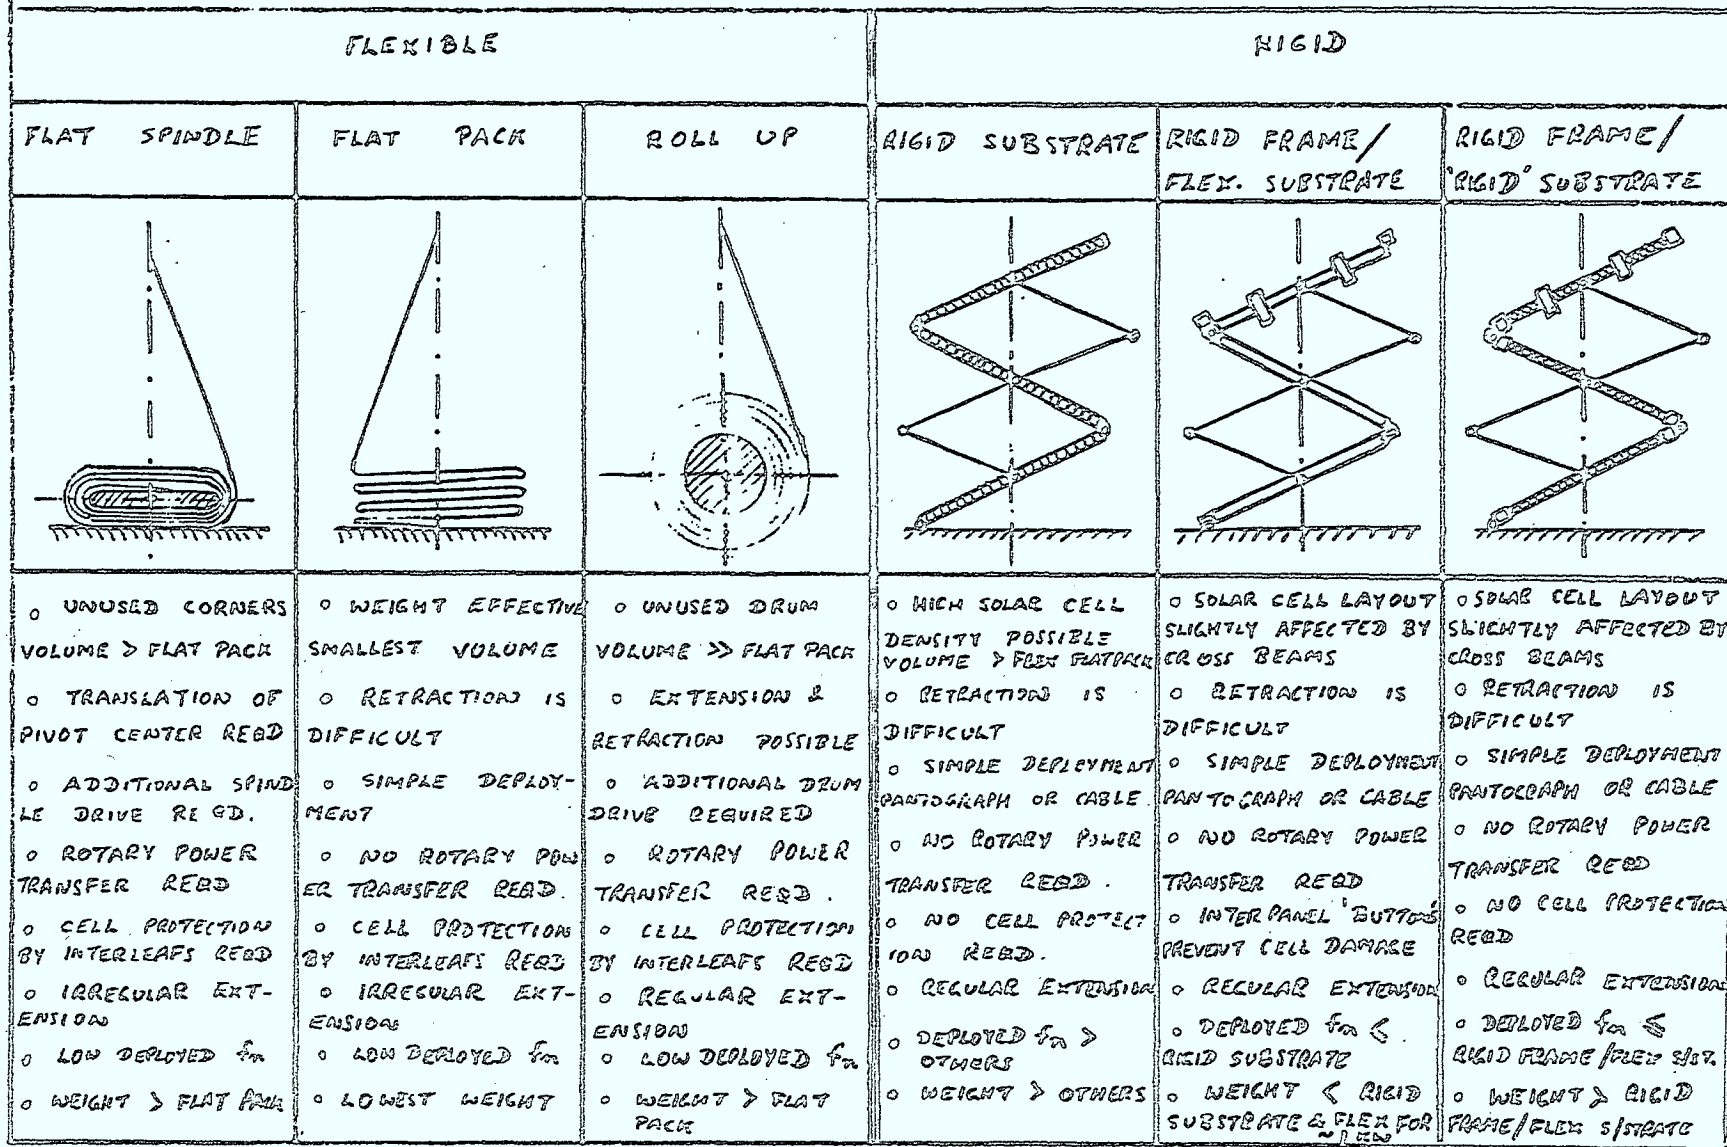 FLEXIBLE
RIGID
FLAT SPINDLE
FLAT PACK
ROLL UP
RIGID SUBSTRATE
RIGID FRAME/
FLEX. SUBSTRATE
RIGID FRAME/
'RIGID' SUBSTRATE
o UNUSED CORNERS
VOLUME > FLAT PACK
o TRANSLATION OF
PIVOT CENTER REQD
o ADDITIONAL SPIND
LE DRIVE REQD.
o ROTARY POWER
TRANSFER REQD
o CELL PROTECTION
BY INTERLEAFS REQD
o IRREGULAR EXT-
ENSION
o LOW DEPLOYED fn
o WEIGHT > FLAT PACK
o WEIGHT EFFECTIVE
SMALLEST VOLUME
o RETRACTION IS
DIFFICULT
o SIMPLE DEPLOY-
MENT
o NO ROTARY POW
ER TRANSFER REQD.
o CELL PROTECTION
BY INTERLEAFS REQD
o IRREGULAR EXT-
ENSION
o LOW DEPLOYED fn
o LOWEST WEIGHT
o UNUSED DRUM
VOLUME >> FLAT PACK
o EXTENSION &
RETRACTION POSSIBLE
o ADDITIONAL DRUM
DRIVE REQUIRED
o ROTARY POWER
TRANSFER REQD.
o CELL PROTECTION
BY INTERLEAFS REQD
o REGULAR EXT-
ENSION
o LOW DEPLOYED fn
o WEIGHT > FLAT
PACK
o HIGH SOLAR CELL
DENSITY POSSIBLE
VOLUME > FLEX FLATPACK
o RETRACTION IS
DIFFICULT
o SIMPLE DEPLOYMENT
PANTOGRAPH OR CABLE.
o NO ROTARY POWER
TRANSFER REQD.
o NO CELL PROTECT
ION REQD.
o REGULAR EXTENSION
o DEPLOYED fn >
OTHERS
o WEIGHT > OTHERS
o SOLAR CELL LAYOUT
SLIGHTLY AFFECTED BY
CROSS BEAMS
o RETRACTION IS
DIFFICULT
o SIMPLE DEPLOYMENT
PANTOGRAPH OR CABLE
o NO ROTARY POWER
TRANSFER REQD
o INTER PANEL 'BUTTONS'
PREVENT CELL DAMAGE
o REGULAR EXTENSION
o DEPLOYED fn <
RIGID SUBSTRATE
o WEIGHT < RIGID
SUBSTRATE & FLEX FOR
o SOLAR CELL LAYOUT
SLIGHTLY AFFECTED BY
CROSS BEAMS
o RETRACTION IS
DIFFICULT
o SIMPLE DEPLOYMENT
PANTOGRAPH OR CABLE
o NO ROTARY POWER
TRANSFER REQD
o NO CELL PROTECTION
REQD
o REGULAR EXTENSION
o DEPLOYED fn ≤
RIGID FRAME/FLEX S/ST.
o WEIGHT > RIGID
FRAME/FLEX S/STRATE